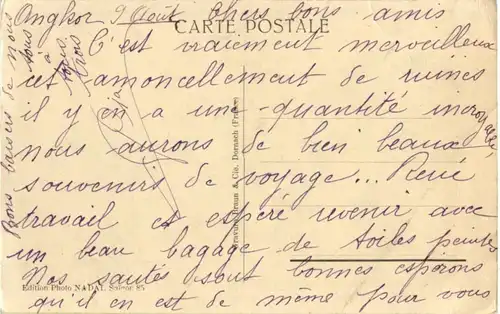 Angkor 9 Août Chers bons amis
CARTE POSTALE
C'est vraiment merveilleux
cet amoncellement de ruines
il y en a une quantité incroyable,
nous aurons de bien beaux
souvenirs de voyage... René
travail et espère revenir avec
un beau bagage de toiles peintes
Nos santés sont bonnes espérons
qu'il en est de même pour vous
Bons baisers de nous
à vous
tous
trois
Braun & Cie, Dornach (France)
Edition Photo NADAL Saïgon 85